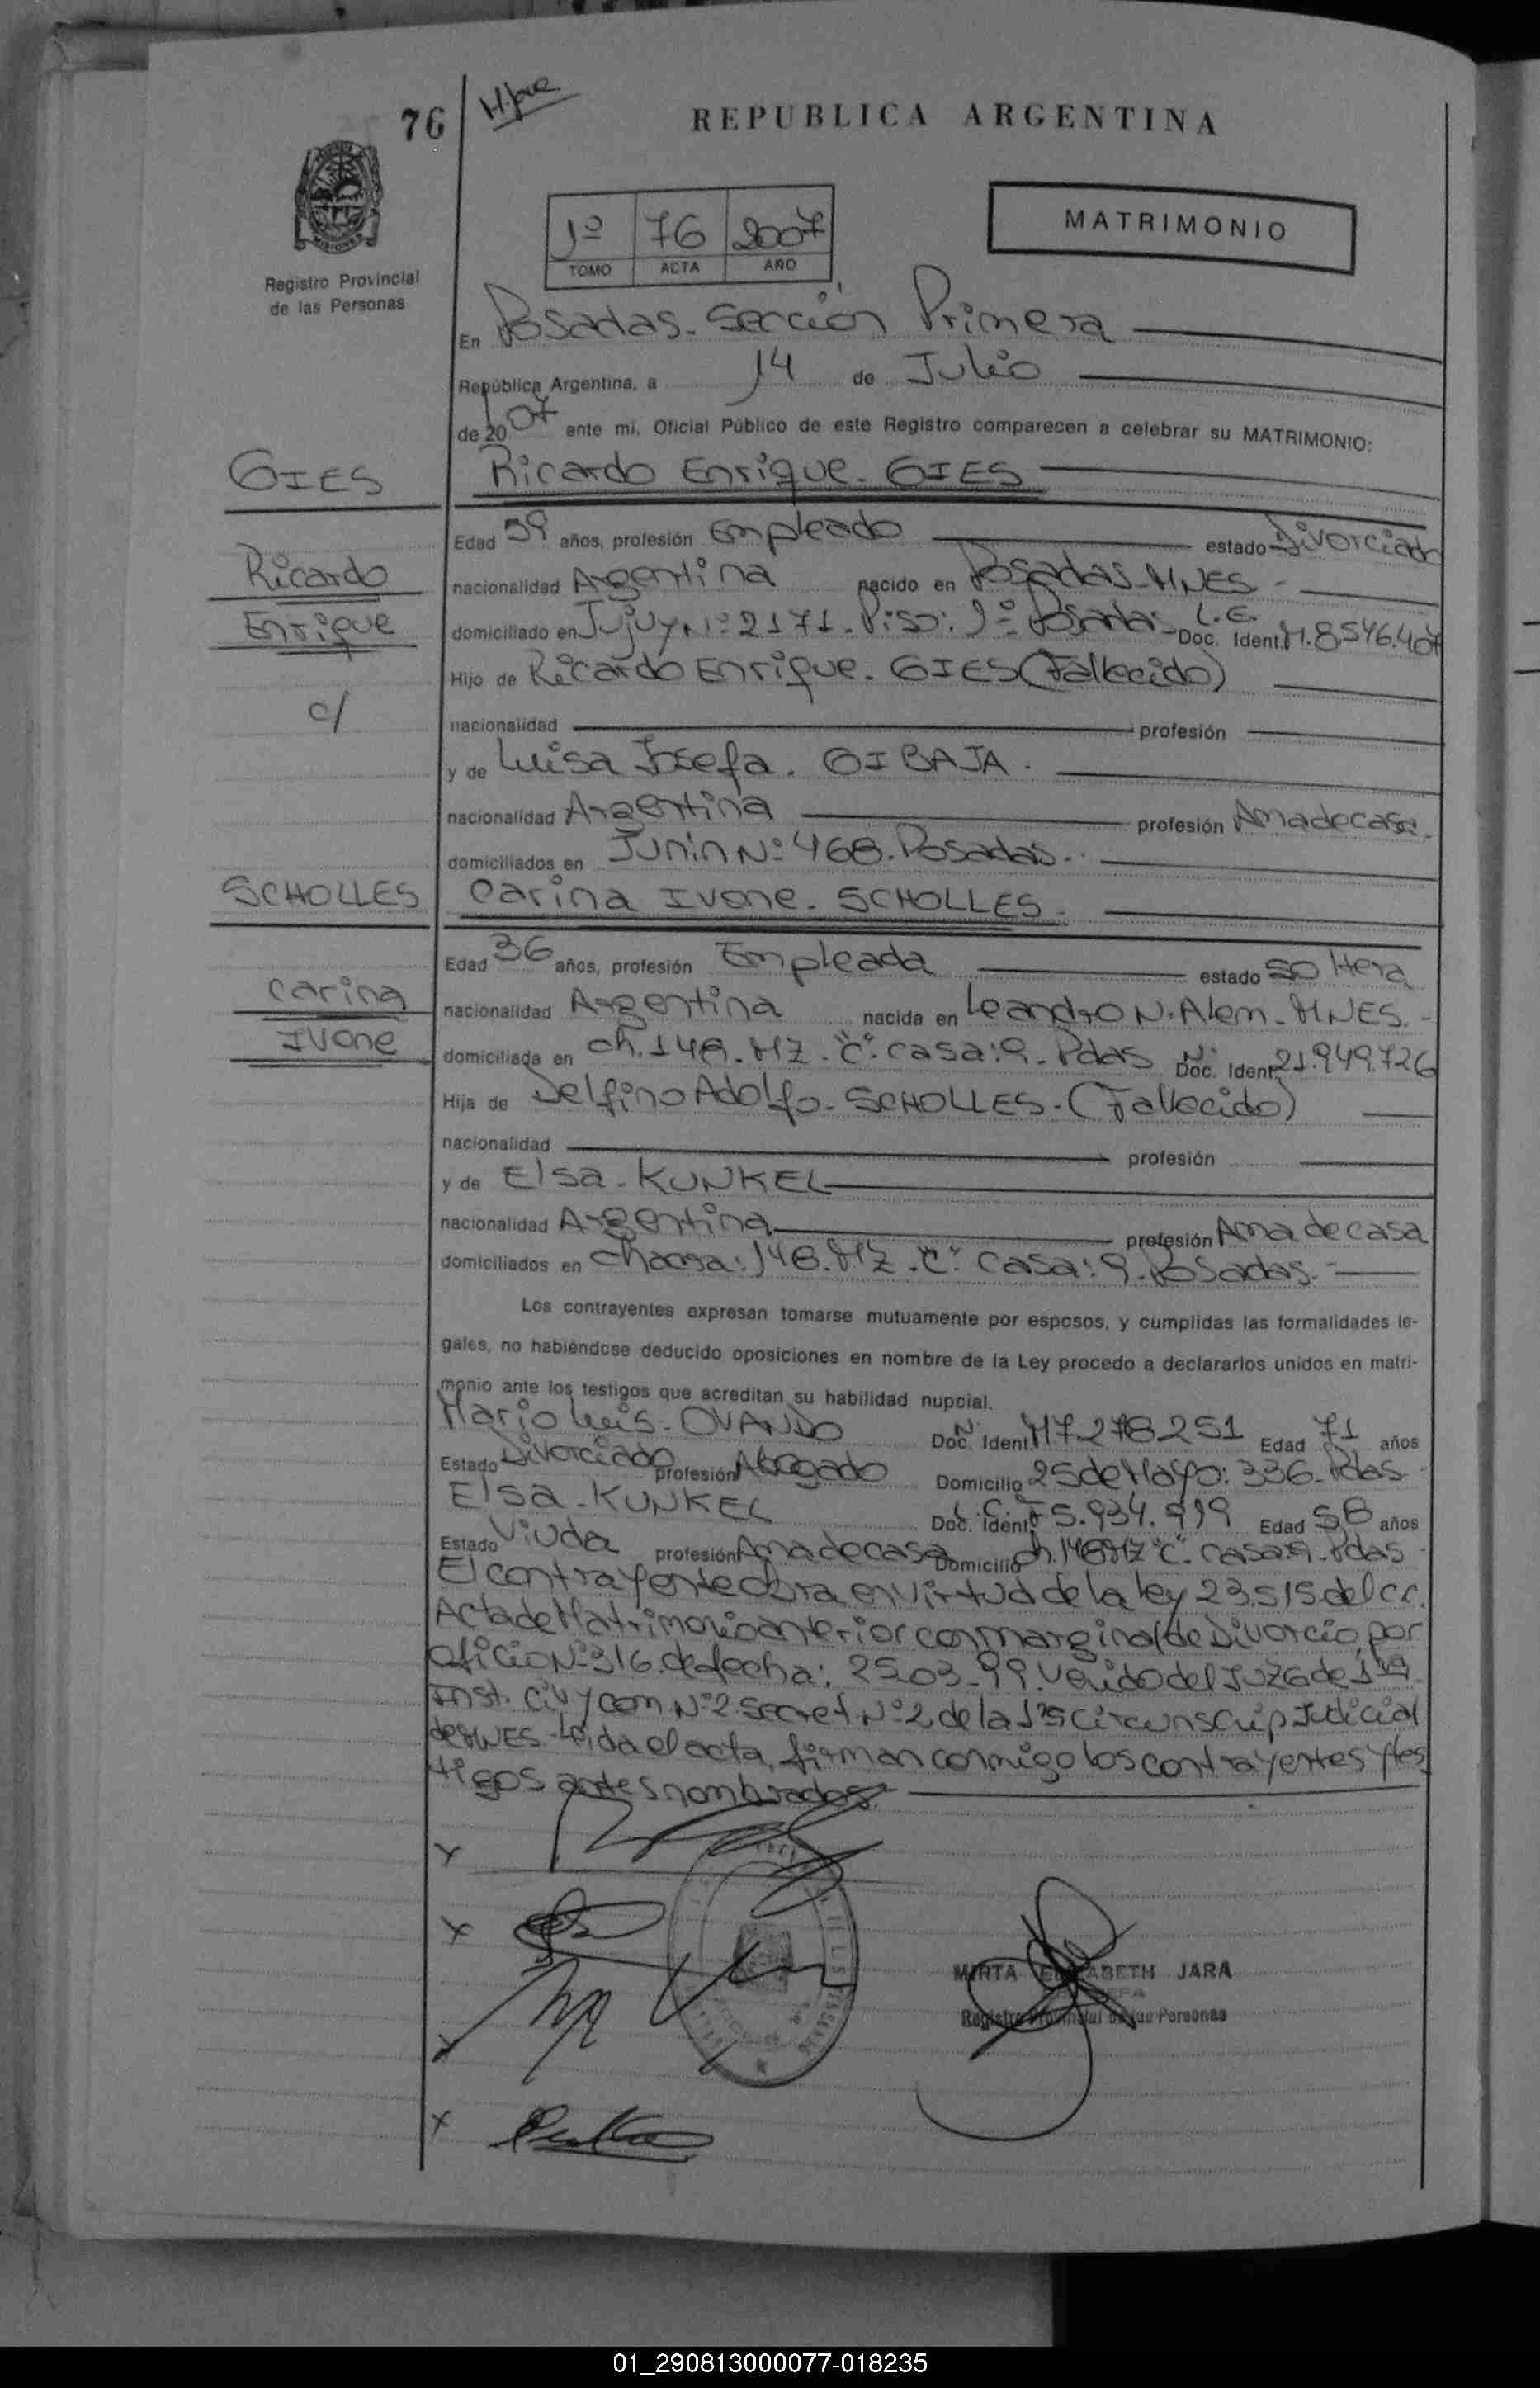 76
H.pre
REPUBLICA ARGENTINA
1º 76 2007
TOMO ACTA AÑO
MATRIMONIO
Registro Provincial
de las Personas
En Posadas. Sección Primera
República Argentina, a 14 de Julio
de 2007 ante mi, Oficial Público de este Registro comparecen a celebrar su MATRIMONIO:
GIES
Ricardo Enrique. GIES
Edad 59 años, profesión Empleado estado Divorciado
Ricardo
nacionalidad Argentina nacido en Posadas-MNES-
Enrique
domiciliado en Jujuy Nº 2171. Piso: 9º- Posadas- L.E. Doc. Ident. M.8.546.407
Hijo de Ricardo Enrique. GIES (Fallecido)
c/
nacionalidad profesión
y de Luisa Josefa. GIBAJA.
nacionalidad Argentina profesión Ama de casa.
domiciliados en Junin Nº 468. Posadas.
SCHOLLES
Carina Ivone. SCHOLLES.
Edad 36 años, profesión Empleada estado Soltera
Carina
nacionalidad Argentina nacida en Leandro N. Alem. MNES.-
Ivone
domiciliada en Ch. 148. MZ. "C". casa: 9. Pdas Doc. Ident. 21.949.726
Hija de Delfino Adolfo. SCHOLLES. (Fallecido)
nacionalidad profesión
y de Elsa. KUNKEL
nacionalidad Argentina profesión Ama de casa
domiciliados en Chacra: 148. MZ. "C" casa: 9. Posadas.
Los contrayentes expresan tomarse mutuamente por esposos, y cumplidas las formalidades le-
gales, no habiéndose deducido oposiciones en nombre de la Ley procedo a declararlos unidos en matri-
monio ante los testigos que acreditan su habilidad nupcial.
Mario Luis. OVANDO Doc. Ident. M7.278.251 Edad 71 años
Estado Divorciado profesión Abogado Domicilio 25 de Mayo: 336. Pdas
Elsa. KUNKEL L.C. Doc. Ident. F5.934.999 Edad 58 años
Estado Viuda profesión Ama de casa Domicilio Ch. 148 MZ "C". casa: 9. Pdas
El contrayente obra en virtud de la ley 23.515 del c.c.
Acta de Matrimonio anterior con marginal de Divorcio, por
oficio Nº 316. de fecha: 25.03.99. venido del Juzg de 1ra
Inst. Civ. y Com Nº 2. Secret. Nº 2, de la 1ra Circunscrip Judicial
de MNES.- Leida el acta, firman conmigo los contrayentes y tes
tigos antes nombrados.
MIRTA ELIZABETH JARA
JEFA
Registro Provincial de las Personas
01_290813000077-018235